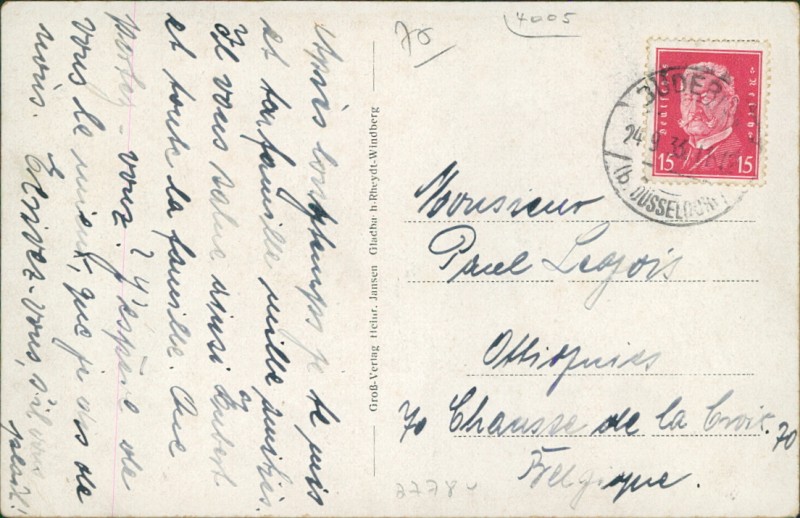 75
4005
BÜDERICH
24.9.3
(b. DÜSSELDORF)
Deutsches Reich
15 15
Après longtemps je te suis
et ta famille mille amitiés.
Je vous salue ainsi
et toute la famille. Que
portez-vous? J'espère de
vous le mieux, que je ais de
mois. Ecrivez-vous, s'il vous
plaît!
Groß-Verlag Heinr. Jansen Gladba h-Rheydt-Windberg
Monsieur
Paul Legois
Ottignies
70 Chausse de la Croix. 70
Belgique.
3778